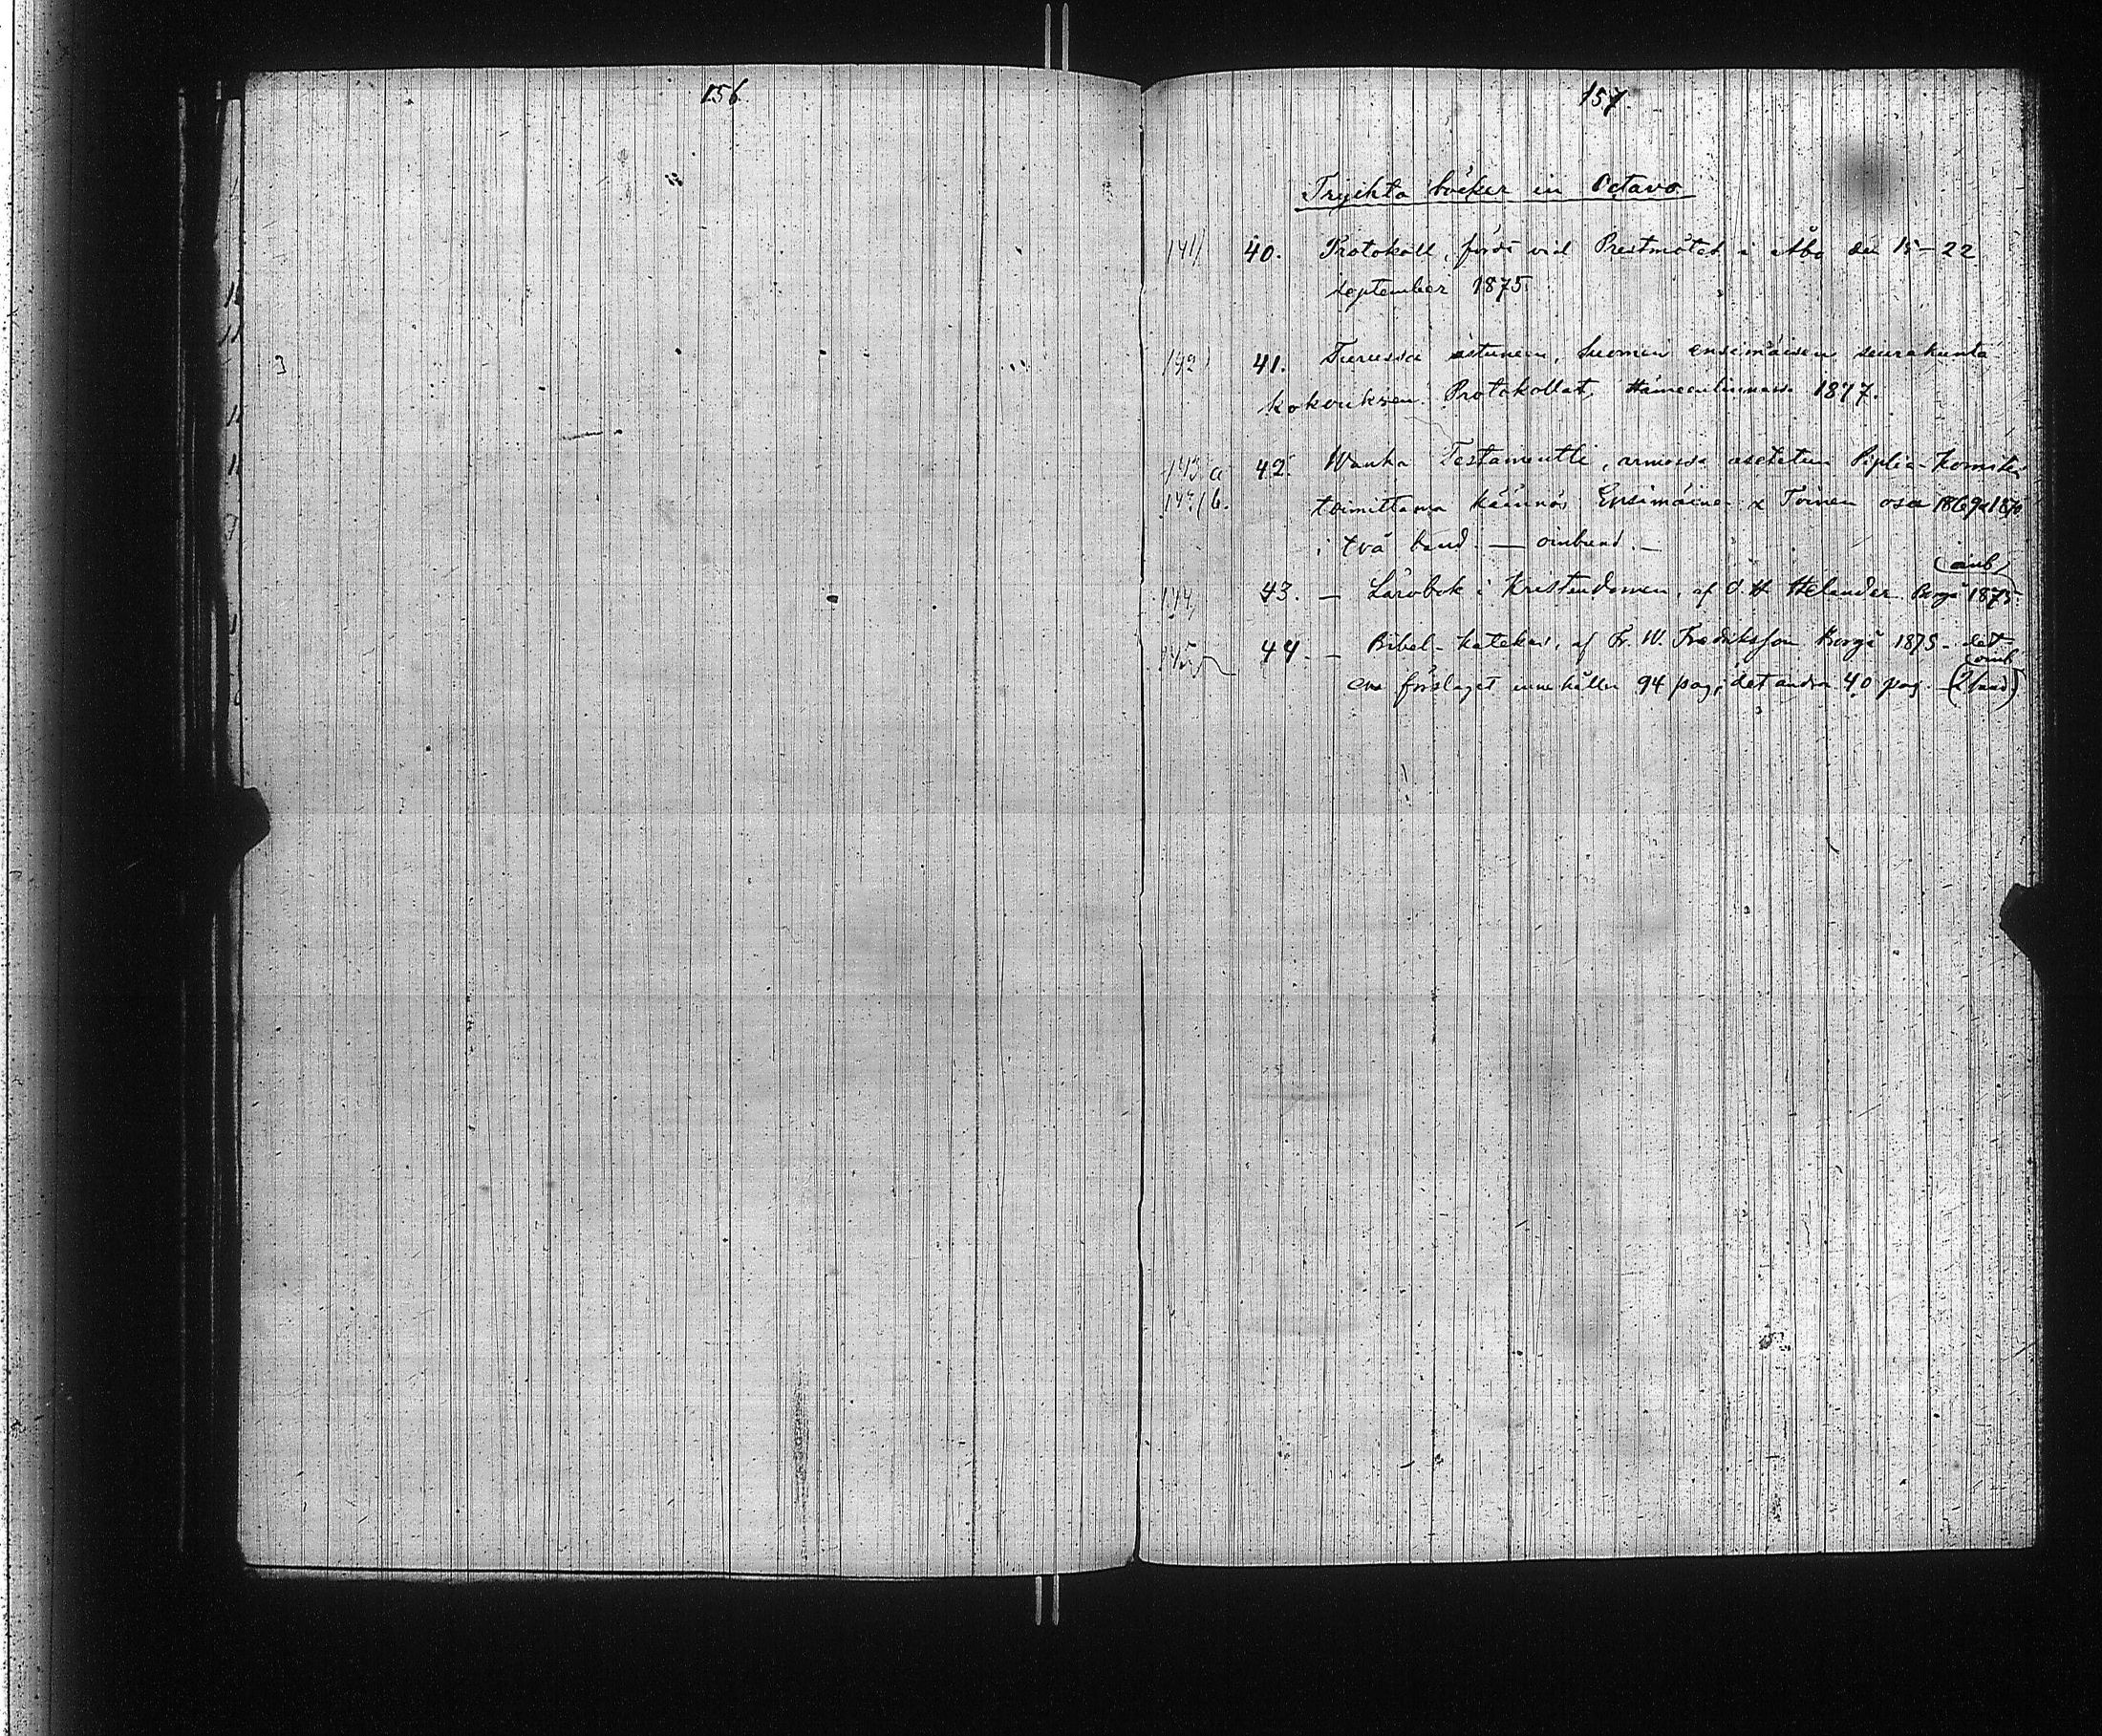 156.
157.
Tryckta böcker in Octavo
141 40. Protokoll, förd vid Prestmötet i Åbo den 15-22
september 1875.
142 41. Turussa istuneen, Suomen ensimäisen seurakunta
kokouksen Protokollat, Hämeenlinnassa 1877.
143 a 42. Wanha Testamentti, armossa asetetun Piplia-Komitean
143/b. toimittama käännös Ensimäinen & Toinen osa 1869
i två band. — oinbund. —
(oinb)
144 43. — Lärobok i Kristendomen, af O. H. Helander. Borgå 1875.
145 44. — Bibel-katekes, af Fr. W. Fredriksson Borgå 1875 - det
oinb
ena förslaget innehåller 94 pag, det andra 40 pag. (2 band)